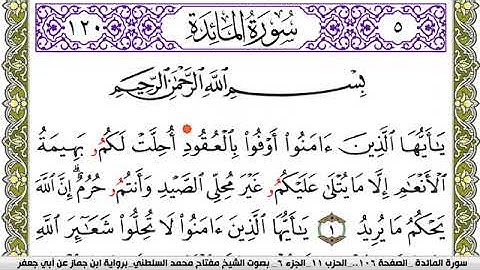 ١٢٠ سُورَةُ المَائدَة ٥
بِسْمِ اللَّهِ الرَّحْمَٰنِ الرَّحِيمِ
يَٰأَيُّهَا الَّذِينَ ءَامَنُوا أَوْفُوا بِالْعُقُودِ أُحِلَّتْ لَكُمُ ر بَهِيمَةُ
الْأَنْعَٰمِ إِلَّا مَا يُتْلَىٰ عَلَيْكُمُ ر غَيْرَ مُحِلِّي الصَّيْدِ وَأَنتُمُ ر حُرُمٌ إِنَّ اللَّهَ
يَحْكُمُ مَا يُرِيدُ ١ يَٰأَيُّهَا الَّذِينَ ءَامَنُوا لَا تُحِلُّوا شَعَٰٓئِرَ اللَّهِ
سورة المائدة _ الصفحة ١٠٦.. الحزب ١١_الجزء ٦_ بصوت الشيخ مفتاح محمد السلطني_برواية ابن جماز عن أبي جعفر